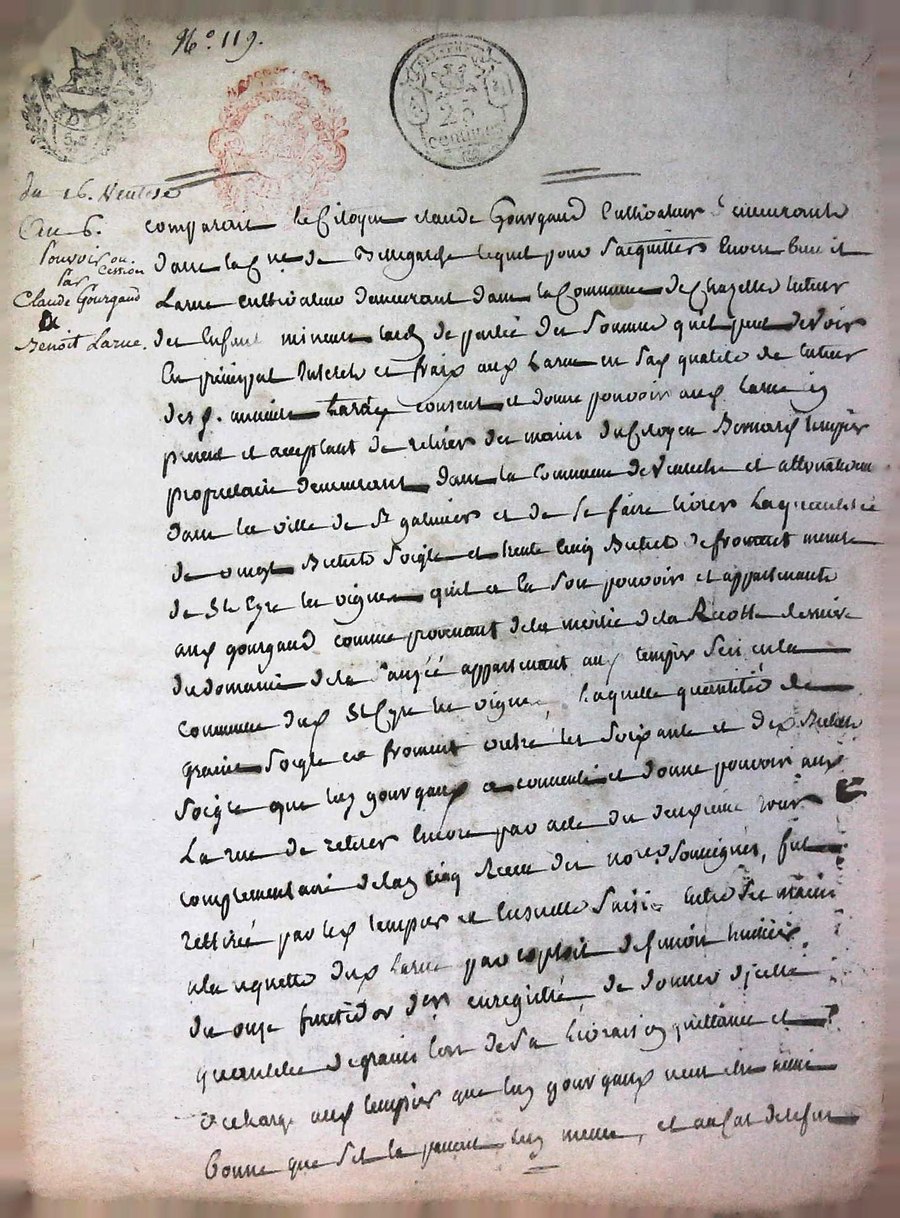 N.o 119.
25
du 16. Ventose
An 6.
Pouvoir ou
Cession
Par
Claude Gourgaud
a
Benoit Larue.
comparait le Citoyen claude Gourgaud Cultivateur demeurante
dans la Cne de Bellegarde lequel pour Sacquitter Envers benoit
Larue cultivateur demeurant dans la Commune de Chazelle tuteur
des Enfant mineurs de partie des Somme quil peut devoir
En principal Interets et fraix aud Larue en Sad qualité de tuteur
desd. mineurs consent et donne pouvoir aud Larue ici
present et acceptant de retirer des mains du Citoyen Bernard tempier
proprietaire demeurant dans la Commune de et
dans la ville de St galmier et de Se faire livrer La quantité
de Bichets Soigle et trente cinq Bichets de froment mesure
de St Cyre les vignes quil a en Son pouvoir et appartenante
aud gourgaud comme provenant de la moitié de la Recolte derniere
du domaine de la appartenant aud tempier Sis en la
commune dud St Cyre les vignes, Laquelle quantité de
grains Soigle et froment outre les Soixante et dix Bichets
Soigle que led gourgaud a consenti et donné pouvoir aud
Larue de retirer Encore par acte du deuxieme jour
complementaire de lan cinq Recu des notes Soussignés, fut
rettirée par led tempier et Ensuitte Saisie entre Ses mains
a la requette dud Larue par exploit de simon huissier
du onze fructidor der enregistré de donner dicelle
quantité de grains lors de Sa livraison quittance et
decharge aud tempier que led gourgaud veut etre aussi
bonne que Si il la passoit lui meme, et au cas de refus